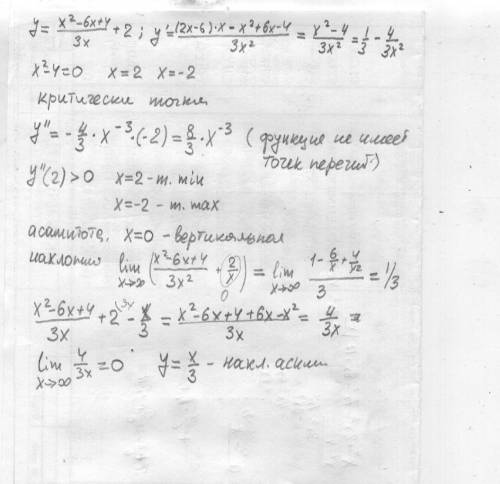 y = (x²-6x+4)/3x + 2 ; y' = ((2x-6)·x - x²+6x-4)/3x² = (x²-4)/3x² = 1/3 - 4/3x²
x²-4=0 x=2 x=-2
критически точки
y'' = -4/3 · x⁻³·(-2) = 8/3 · x⁻³ (функция не имеет
точек перегиб.)
y''(2) > 0 x=2 - т. min
x=-2 - т. max
x=0 - вертикальная
lim x→∞ ((x²-6x+4)/3x² + 2/x) = lim x→∞ (1 - 6/x + 4/x²)/3 = 1/3
0
(x²-6x+4)/3x + 2 - x/3 = (x²-6x+4+6x-x²)/3x = 4/3x =
lim x→∞ 4/3x = 0 y = x/3 - накл. асим.